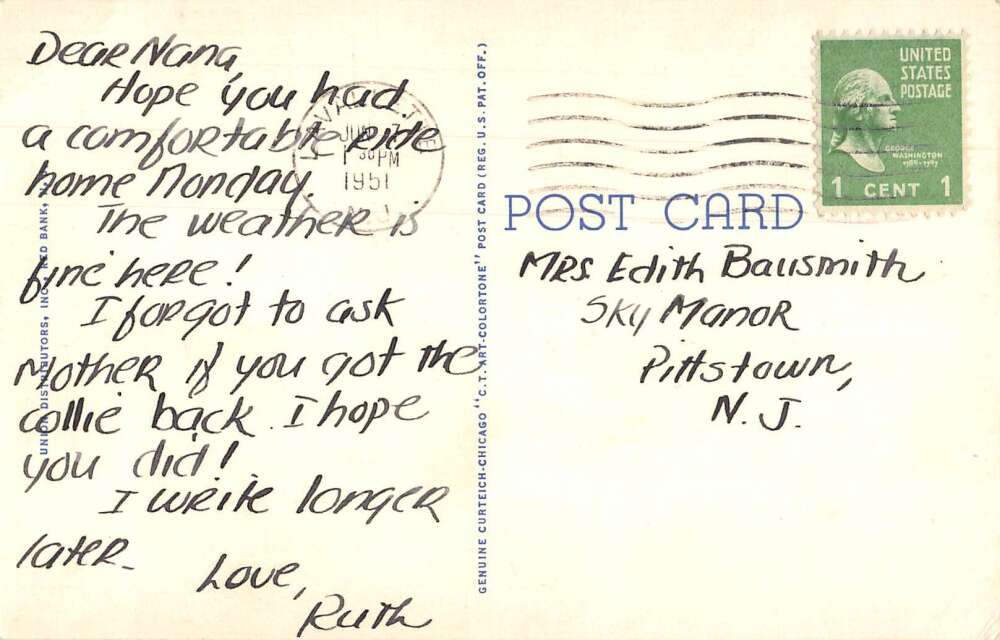 Dear Nana,
Hope you had
a comfortable ride
home Monday.
The weather is
fine here!
I forgot to ask
Mother if you got the
collie back. I hope
you did!
I write longer
later.
Love,
Ruth
UNION DISTRIBUTORS, INC., RED BANK, N.
GENUINE CURTEICH-CHICAGO "C.T. ART-COLORTONE" POST CARD (REG. U.S. PAT. OFF.)
1 30 PM
1951
N.J.
UNITED
STATES
POSTAGE
GEORGE
WASHINGTON
1 CENT 1
POST CARD
Mrs. Edith Bausmith
Sky Manor
Pittstown,
N.J.